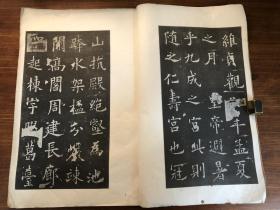 維貞觀年孟夏
之月帝避暑
乎九成之宮此則
隨之仁壽宮也冠
山抗殿絕壑為池
跨水架楹分巖竦
闕高閣周建長廊
四起棟宇膠葛臺